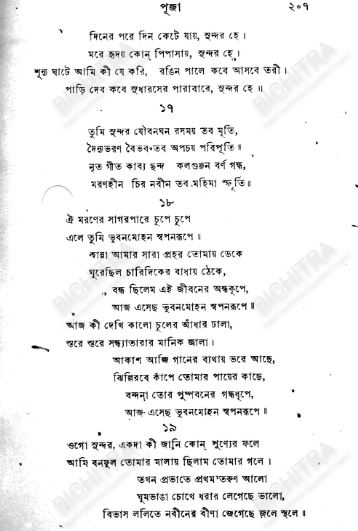 পূজা ২০৭
দিনের পরে দিন কেটে যায়, সুন্দর হে।
মরে হৃদয় কোন্ পিপাসায়, সুন্দর হে।
শূন্য ঘাটে আমি কী যে করি, রঙিন পালে কবে আসবে তরী।
পাড়ি দেব কবে সুধারসের পারাবারে, সুন্দর হে॥
১৭
তুমি সুন্দর যৌবনঘন রসময় তব মূর্তি,
দৈন্যভরণ বৈভব তব অপচয় পরিপূর্তি॥
নৃত্য গীত কাব্য ছন্দ কলগুঞ্জন বর্ণ গন্ধ,
মরণহীন চির নবীন তব মহিমা স্ফূর্তি॥
১৮
ঐ মরণের সাগরপারে চুপে চুপে
এলে তুমি ভুবনমোহন স্বপনরূপে॥
কান্না আমার সারা প্রহর তোমায় ডেকে
ঘুরেছিল চারিদিকের বাধায় ঠেকে,
বন্ধ ছিলেম এই জীবনের অন্ধকূপে,
আজ এসেছ ভুবনমোহন স্বপনরূপে॥
আজ কী দেখি কালো চুলের আঁধার ঢালা,
স্তরে স্তরে সন্ধ্যাতারার মানিক জ্বালা।
আকাশ আজি গানের ব্যথায় ভরে আছে,
ঝিল্লিরবে কাঁপে তোমার পায়ের কাছে,
বন্দনা তোর পুষ্পবনের গন্ধধূপে,
আজ এসেছ ভুবনমোহন স্বপনরূপে॥
১৯
ওগো সুন্দর, একদা কী জানি কোন্ পুণ্যের ফলে
আমি বনফুল তোমার মালায় ছিলাম তোমার গলে।
তখন প্রভাতে প্রথম তরুণ আলো
ঘুমভাঙা চোখে ধরার লেগেছে ভালো,
বিভাস ললিতে নবীনের বীণা জেগেছে জলে স্থলে।
BICHITRA